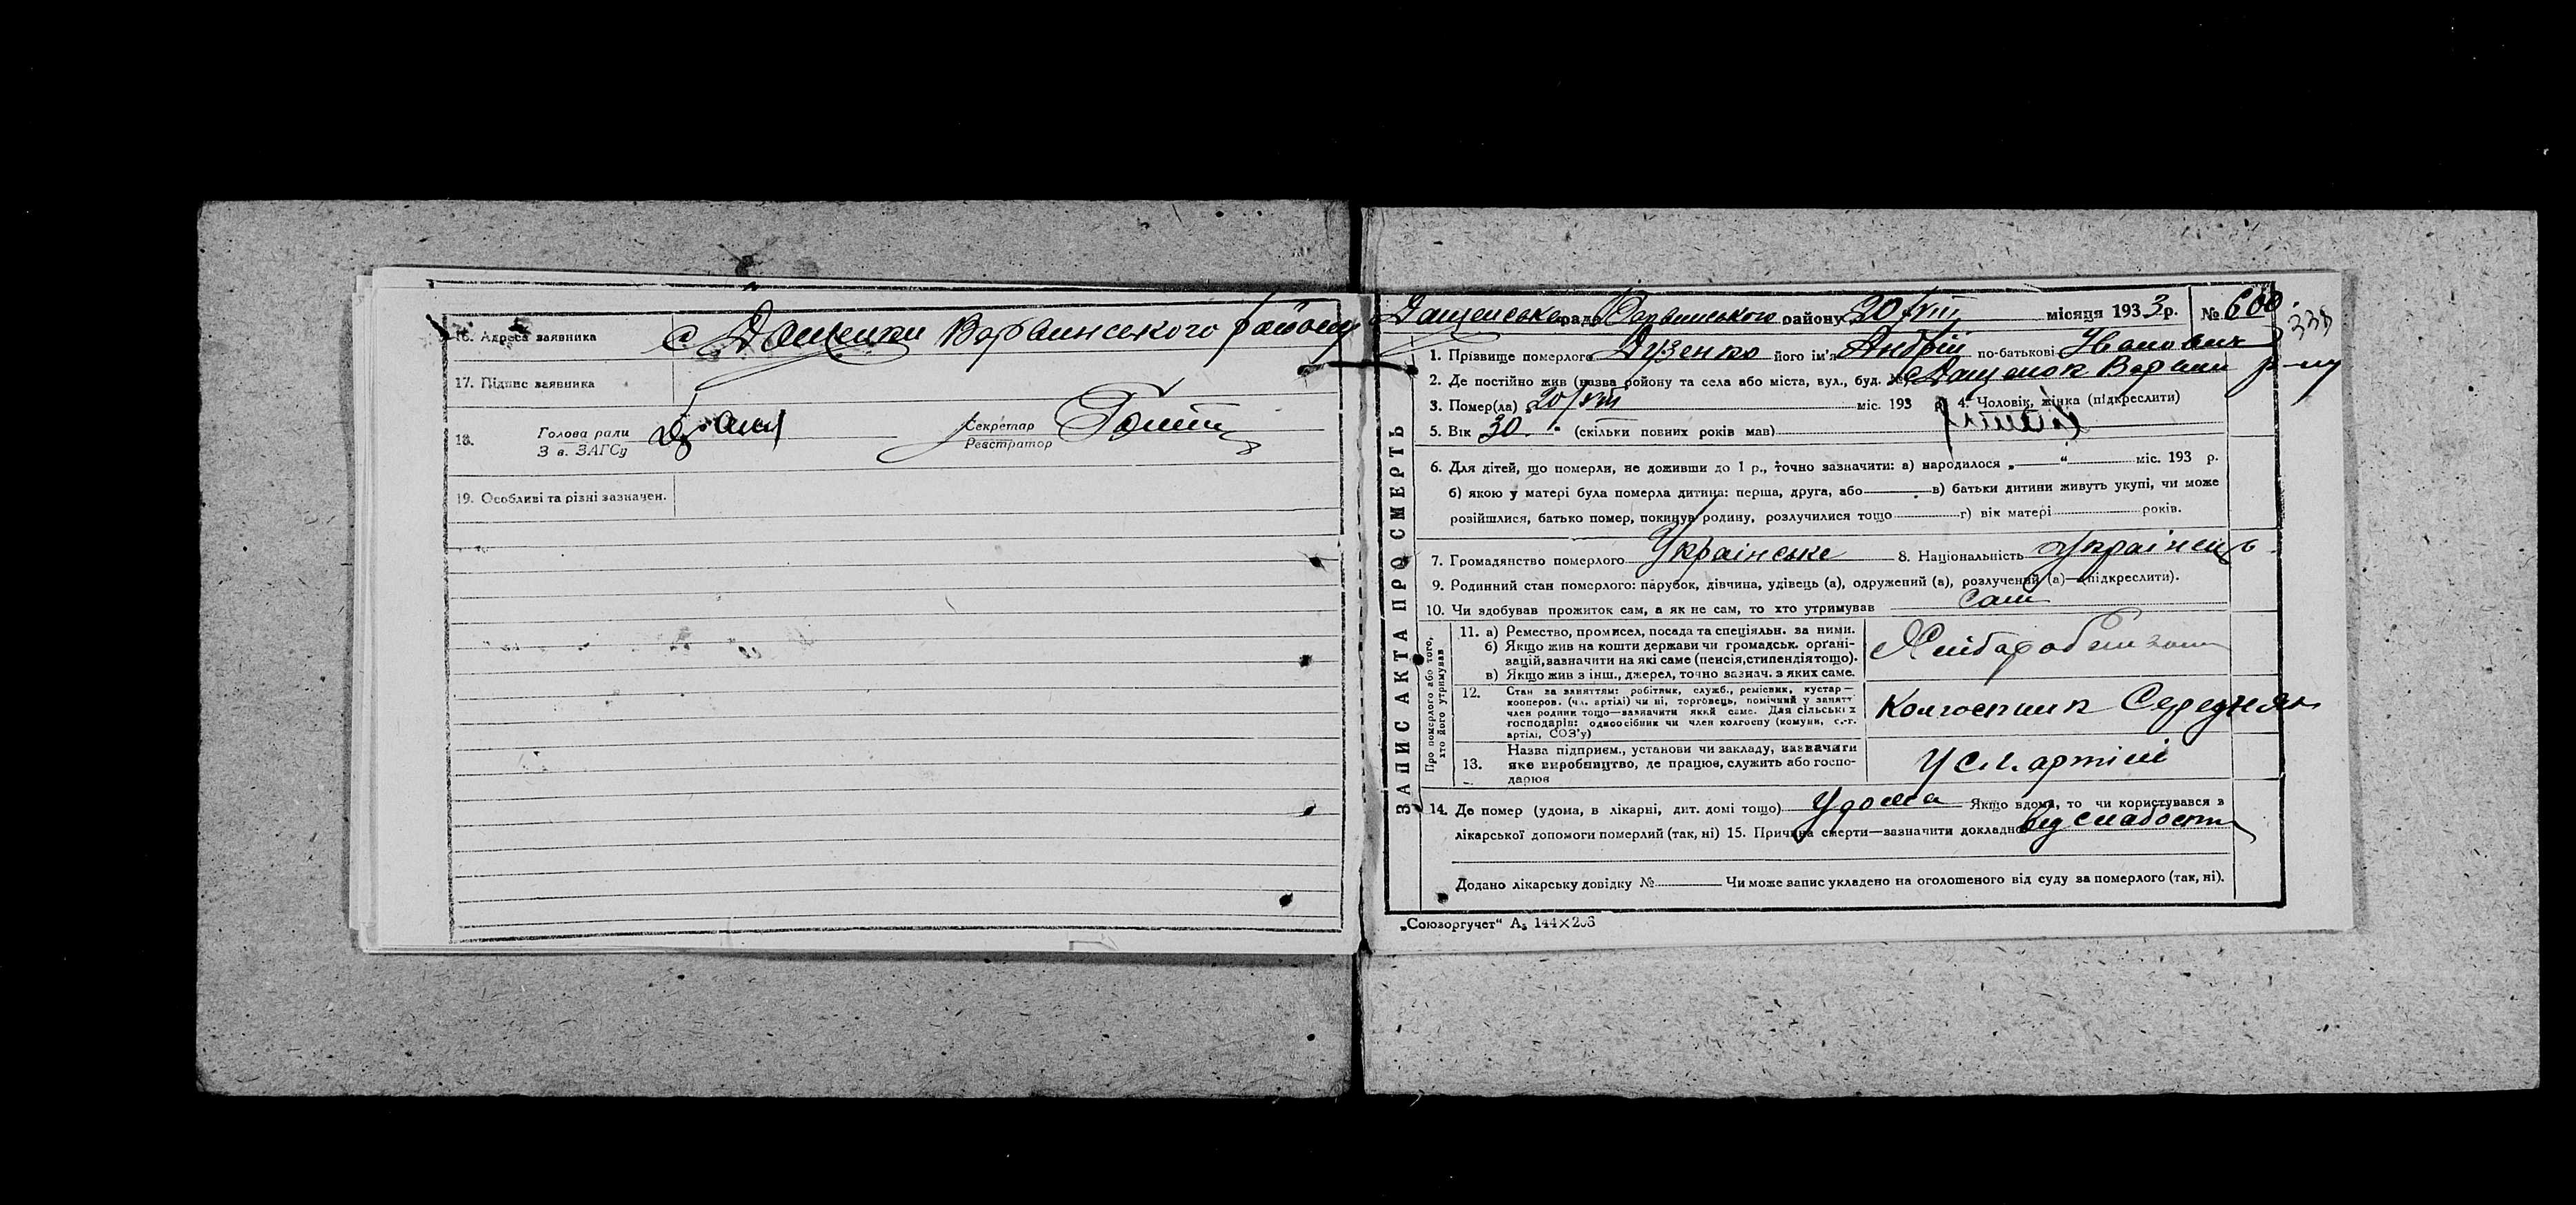 16. Адреса заявника с Дащенки Варвинського району
17. Підпис заявника
18. Голова ради
З в. ЗАГСу
Секретар
Реєстратор
19. Особливі та різні зазначен.
ЗАПИС АКТА ПРО СМЕРТЬ
Дащенська рада Варвинського району 20/VIII місяця 1933 р. № 600
338
1. Прізвище померлого Дузенко його ім'я Андрій по-батькові Іванович
2. Де постійно жив (назва району та села або міста, вул., буд. №) с Дащенок Варвин р-ну
3. Помер(ла) „20/VIII міс. 193 р. 4. Чоловік, жінка (підкреслити)
5. Вік 30 (скільки повних років мав)
6. Для дітей, що померли, не доживши до 1 р., точно зазначити: а) народилося „ “ міс. 193 р.
б) якою у матері була померла дитина: перша, друга, або в) батьки дитини живуть укупі, чи може
розійшлися, батько помер, покинув родину, розлучилися тощо г) вік матері років.
7. Громадянство померлого Українське 8. Національність Українець
9. Родинний стан померлого: парубок, дівчина, удівець (а), одружений (а), розлучений (а)—(підкреслити).
10. Чи здобував прожиток сам, а як не сам, то хто утримував Сам
Про померлого або того, хто його утримував
11. а) Ремество, промисел, посада та спеціяльн. за ними.
б) Якщо жив на кошти держави чи громадськ. органі-
зацій, зазначити на які саме (пенсія, стипендія тощо).
в) Якщо жив з інш., джерел, точно зазнач. з яких саме.
12. Стан за заняттям: робітник, служб., ремісник, кустар—
кооперов. (чл. артілі) чи ні, торговець, помічний у занятт
член родини тощо—зазначити який саме. Для сільських
господарів: одноосібник чи член колгоспу (комуни, с.-г.
артілі, СОЗ'у)
Колгоспник Середняк
13. Назва підприєм., установи чи закладу, зазначити
яке виробництво, де працює, служить або госпо-
дарює
У с.г. артілі
14. Де помер (удома, в лікарні, дит. домі тощо) Удома Якщо вдома, то чи користувався в
лікарської допомоги померлий (так, ні) 15. Причина смерти—зазначити докладно від слабости
Додано лікарську довідку № Чи може запис укладено на оголошеного від суду за померлого (так, ні).
„Союзоргучет“ А₅ 144×206